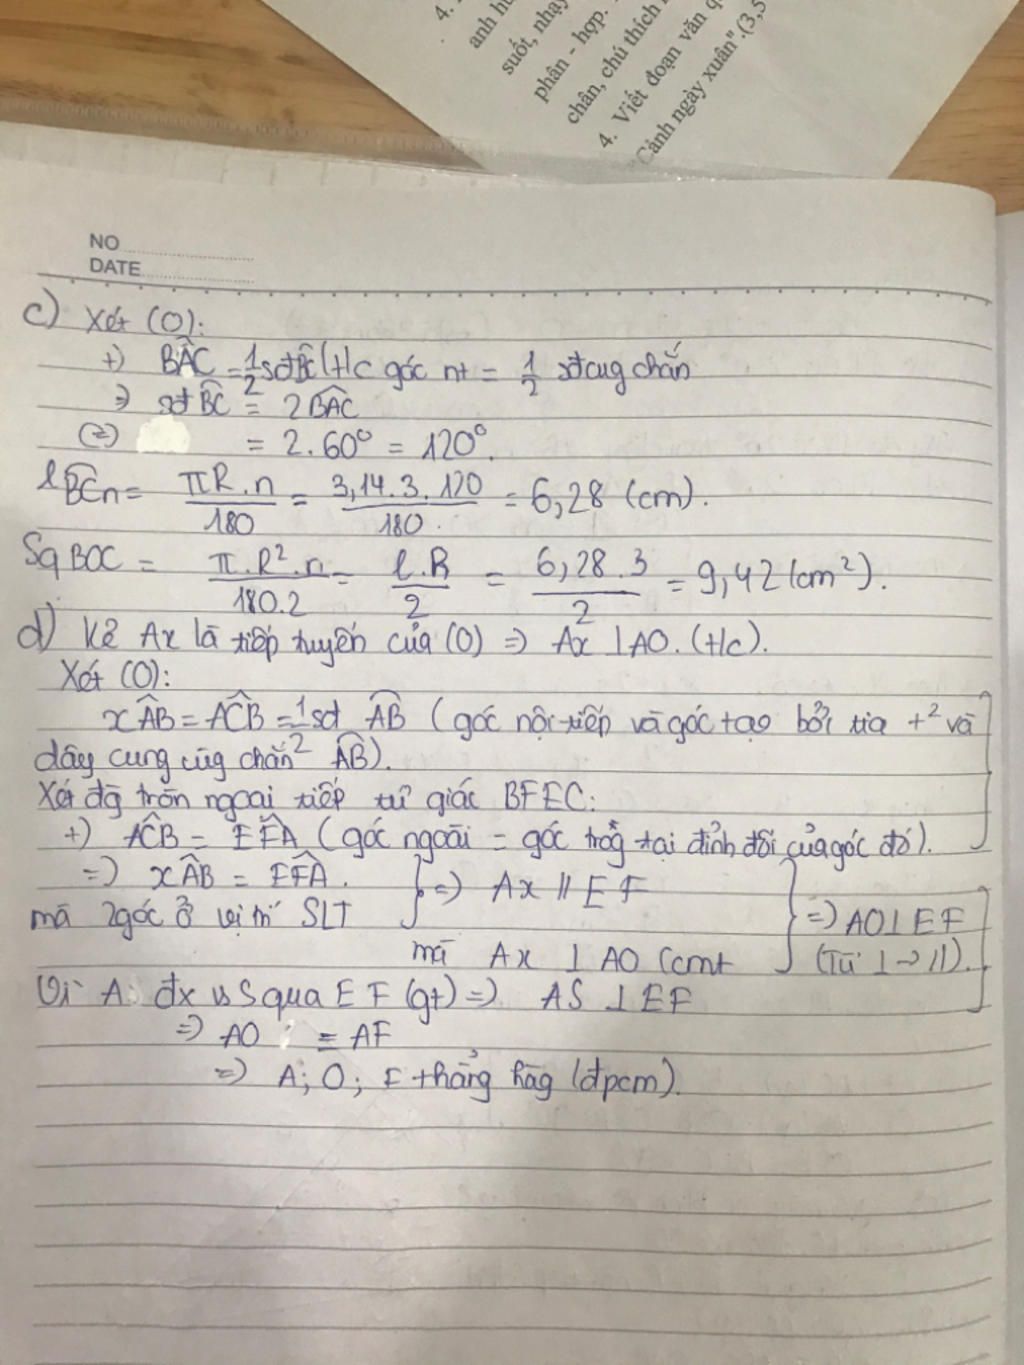 4.
anh h
suốt, nhạy
phân - hợp.
chân, chú thích
4. Viết đoạn văn q
"Cảnh ngày xuân".(3,5
NO
DATE
c) Xét (O):
+) BÂC = 1/2 sđ BC (t/c góc nt = 1/2 sđ cug chắn
=> sđ BC = 2BAC
(=) = 2.60° = 120°.
l BCn = πR.n/180 = 3,14.3.120/180. = 6,28 (cm).
Sq BOC = π.R².n/180.2 = l.R/2 = 6,28.3/2 = 9,42 (cm²).
d) Kẻ Ax là tiếp tuyến của (O) => Ax ⊥ AO. (t/c).
Xét (O):
xÂB = AĈB = 1/2 sđ AB (góc nội tiếp và góc tạo bởi tia t² và
dây cung cùg chắn AB).
Xét đg tròn ngoại tiếp tứ giác BFEC:
+) AĈB = EFA (góc ngoài = góc trog tại đỉnh đối của góc đó).
=> xÂB = EFA. } => Ax // EF
mà 2góc ở vị trí SLT } => AO ⊥ EF
mà Ax ⊥ AO (cmt (Từ ⊥ -> //).
Vì A đx vs S qua EF (gt) => AS ⊥ EF
=> AO = AF
=> A; O; F thẳng hàg (đpcm).